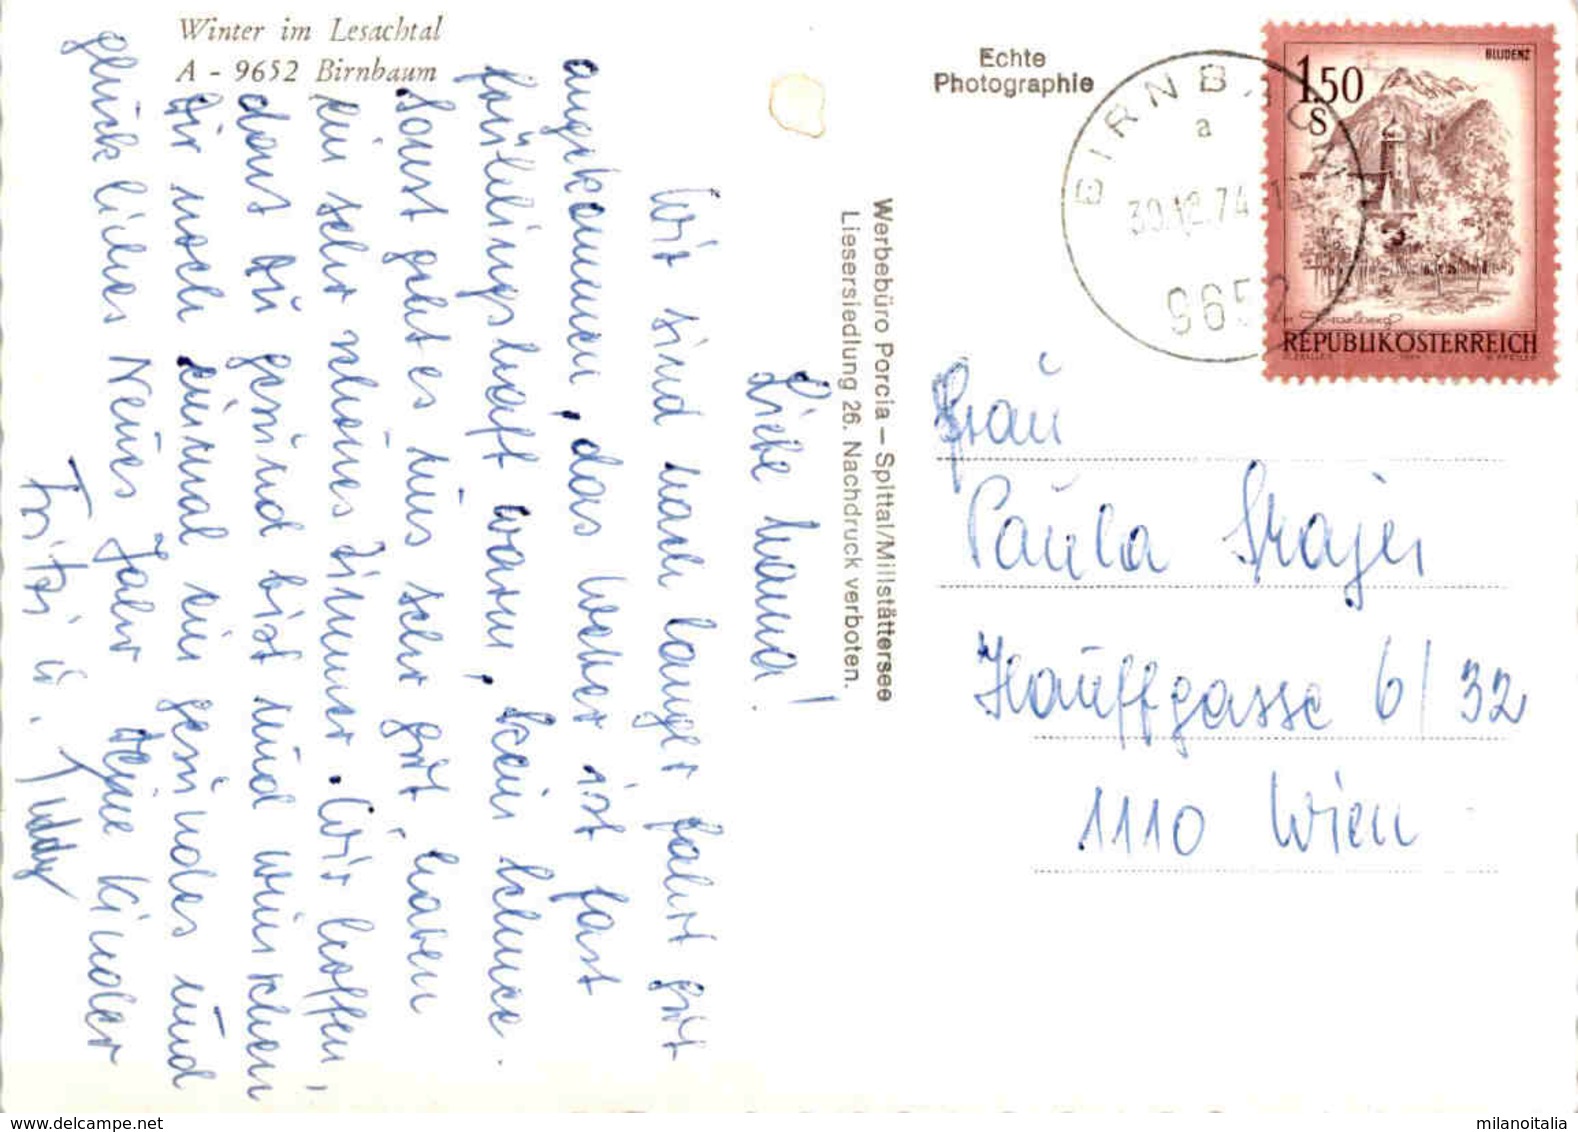 Winter im Lesachtal
A - 9652 Birnbaum
Echte
Photographie
BIRNBAUM
a
30.12.74
9652
BLUDENZ
1.50
S
Vorarlberg
REPUBLIK ÖSTERREICH
Werbebüro Porcia – Spittal/Millstättersee
Liesersiedlung 26. Nachdruck verboten.
Liebe Mama!
Wir sind nach langer Fahrt gut
angekommen, das Wetter ist fast
frühlingshaft warm, kein Schnee.
Sonst geht es uns sehr gut, haben
ein sehr schönes Zimmer. Wir hoffen,
dast Du gesund bist und wünschen
Dir noch einmal ein gesundes und
glückliches Neues Jahr Deine Kinder
Fritzi u.
Frau
Paula Strajer
Hauffgasse 6/32
1110 Wien
milanoitalia